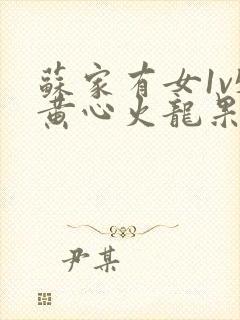 蘇家有女1v
黄心火龍果
尹某